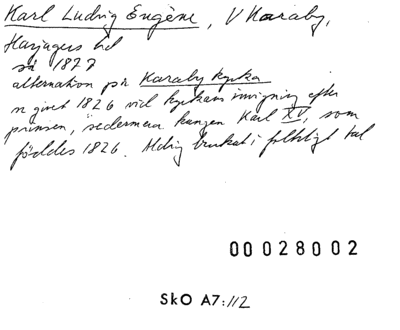 Karl Ludvig Eugène, V Karaby,
Harjagers hd
så 1877
alternation på Karaby kyrka
n givet 1826 vid kyrkans invigning efter
prinsen, sedermera kungen Karl XV, som
föddes 1826. Aldrig brukat i folkligt tal
00 0280 02
SkO A7:112